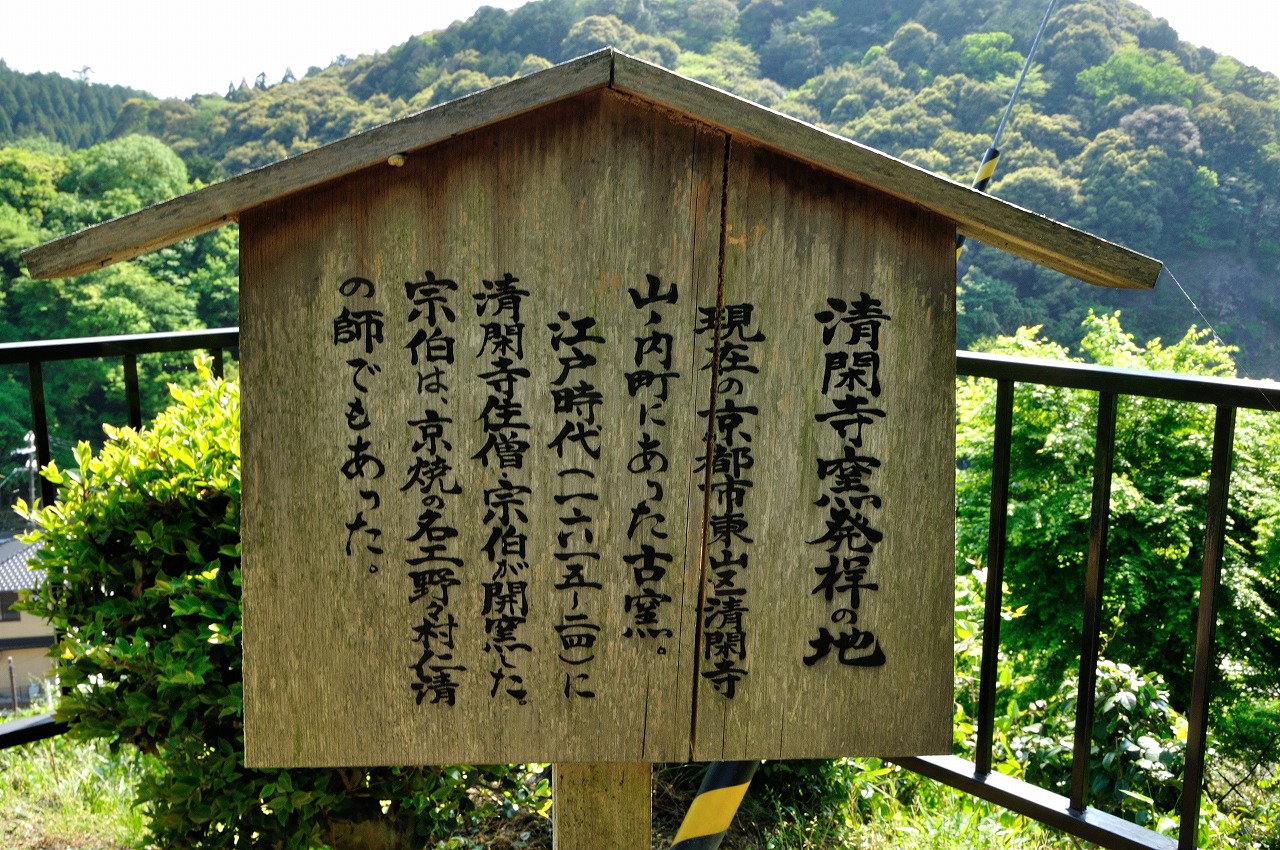 清閑寺窯発祥の地
現在の京都市東山区清閑寺
山ノ内町にあった古窯。
江戸時代(一六一五-二四)に
清閑寺住僧・宗伯が開窯した。
宗伯は、京焼の名工野々村仁清
の師でもあった。